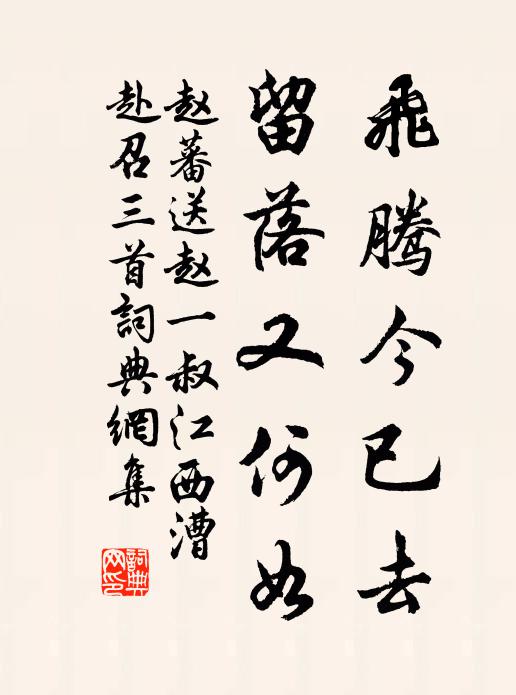 飛騰今已去
留落又何如
赵蕃送赵一叔江西漕
赴召三首詞典網集
詞典
网印